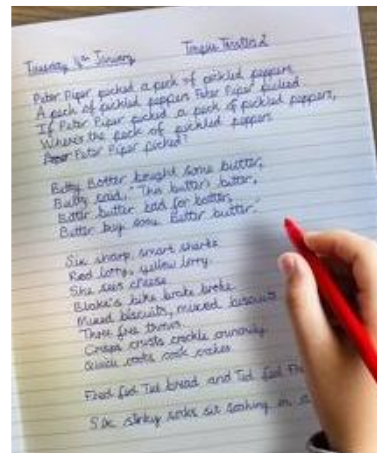 Tuesday 4th January Tongue Twisters 2
Peter Piper picked a peck of pickled peppers
A peck of pickled peppers Peter Piper picked
If Peter Piper picked a peck of pickled peppers,
Where's the peck of pickled peppers
Peter Piper picked?
Betty Botter bought some butter,
Betty said, "This butter's bitter,
Bitter butter bad for batter,
Better buy some better butter."
Six sharp smart sharks
Red lorry, yellow lorry.
She sees cheese
Blake's bike brake broke
Mixed biscuits, mixed biscuits
Three free throws
Crisps crusts crackle crunchily
Quick cooks cook cakes
Fred fed Ted bread and Ted fed
Six sticky socks sit soaking in a